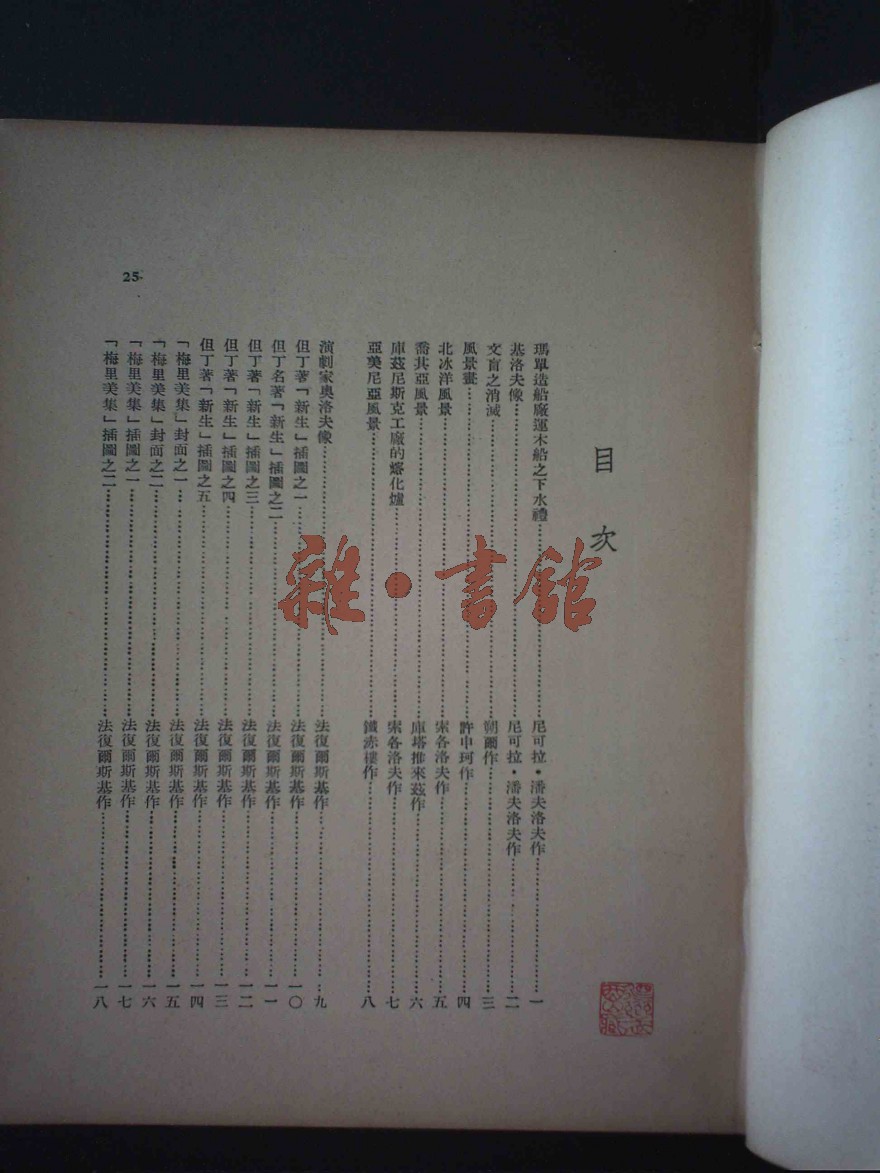 目次
瑪單造船廠運木船之下水禮……尼可拉·潘夫洛夫作……一
基洛夫像……尼可拉·潘夫洛夫作……二
文盲之消滅……朝爾作……三
風景畫……許申珂作……四
北冰洋風景……索各洛夫作……五
喬其亞風景……庫塔推來茲作……六
庫茲尼斯克工廠的熔化爐……索各洛夫作……七
亞美尼亞風景……鐵赤樓作……八
演劇家奧洛夫像……法復爾斯基作……九
但丁著「新生」插圖之一……法復爾斯基作……一〇
但丁名著「新生」插圖之二……法復爾斯基作……一一
但丁著「新生」插圖之三……法復爾斯基作……一二
但丁著「新生」插圖之四……法復爾斯基作……一三
但丁著「新生」插圖之五……法復爾斯基作……一四
「梅里美集」封面之一……法復爾斯基作……一五
「梅里美集」封面之二……法復爾斯基作……一六
「梅里美集」插圖之一……法復爾斯基作……一七
「梅里美集」插圖之二……法復爾斯基作……一八
25
雜·書館